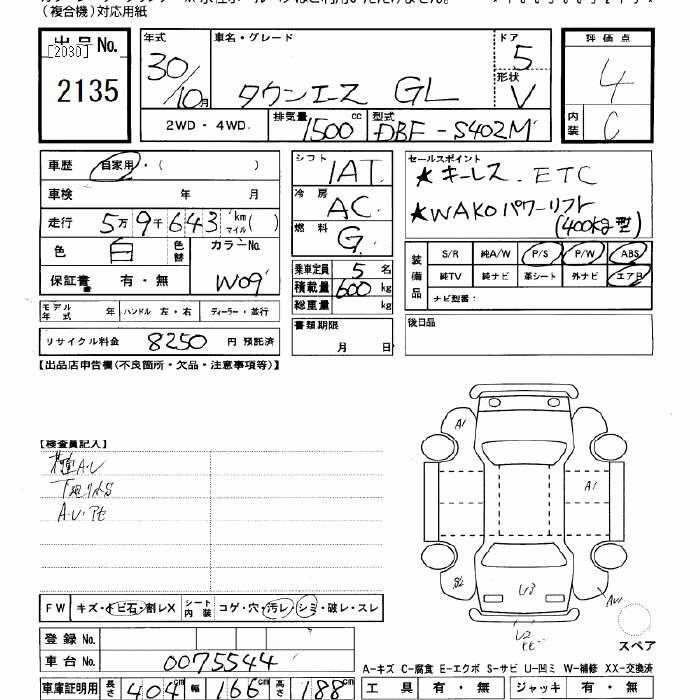 (複合機)対応用紙
出品No. 年式 車名・グレード ドア 評価点
[2030] 30/10月 タウンエース GL 5 4
2135 形状 V
2WD・4WD. 排気量 1500cc 型式 DBF-S402M 内装 C
車歴 自家用・( ) シフト 1AT セールスポイント
車検 年 月 冷房 AC ★キーレス.ETC
走行 5万9千643km マイル( ) 燃料 G ★WAKOパワーリフト
(400kg型)
色 白 色替 カラーNo. W09
保証書 有・無
乗車定員 5名
積載量 600kg
総重量 kg
装備品 S/R 純A/W P/S P/W ABS
純TV 純ナビ 革シート 外ナビ エアB
ナビ型番:
モデル年式 年 ハンドル 左・右 ディーラー・並行
書類期限 月 日
後日品
リサイクル料金 8250 円 預託済
【出品店申告欄(不良箇所・欠品・注意事項等)】
【検査員記入】
A・U
A1
A1
U3
FW キズ・トビ石・割レX シート内装 コゲ・穴・汚レ・シミ・破レ・スレ
登録No.
車台No. 0075544
スペア
A-キズ C-腐食 E-エクボ S-サビ U-凹ミ W-補修 XX-交換済
車庫証明用 長さ 404cm 幅 166cm 高さ 188cm 工具 有・無 ジャッキ 有・無